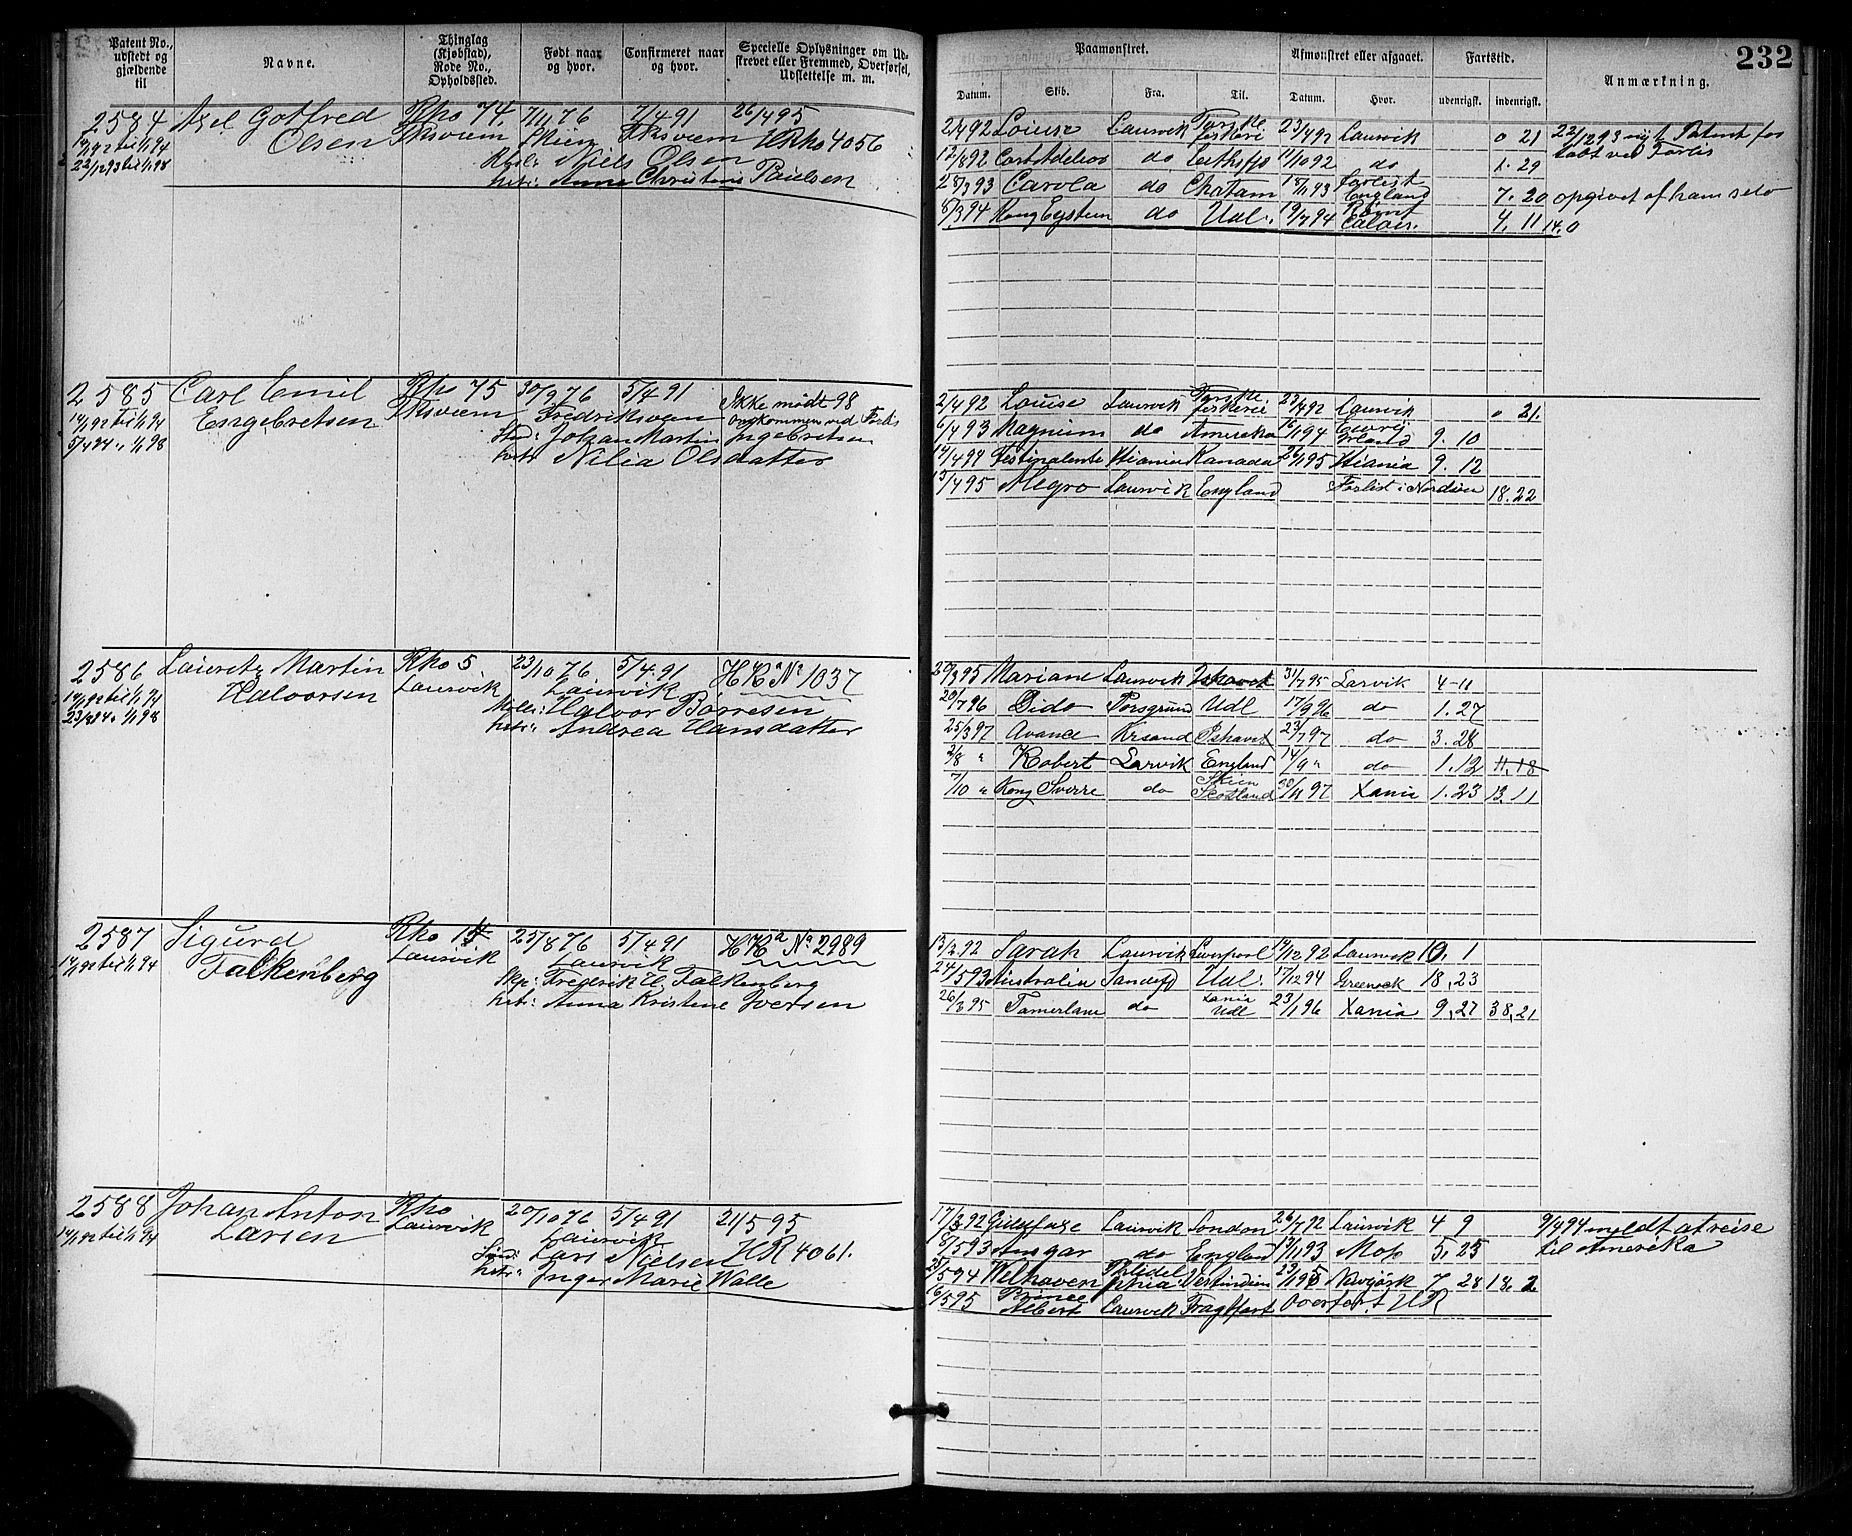 232
Patent No., udstedt og gjældende til
Navne.
Thinglag (Kjøbstad), Rode No., Opholdssted.
Født naar og hvor.
Confirmeret naar og hvor.
Specielle Oplysninger om Udskrevet eller Fremmed, Overførsel, Udslettelse m. m.
Paamønstret.
Afmønstret eller afgaaet.
Fartstid.
Anmærkning.
Datum. Skib. Fra. Til. Datum. Hvor. udenrigsk. indenrigsk.
2584 Axel Gotfred Rko 74. 7/11 76 7/4 91 26/4 95
Olsen Skien HRko 4056
22/12 93 til 1/1 98 Niels Olsen
Anna Christens Paulsen
2/4 92 Louise Laurvik 23/4 92 Laurvik 0 21 22/12 93 nyt Patent for
12/8 92 do 11/10 92 do 1. 29 tabt ved Forlis
Carola do Chatam 18/11 93 Forlist England 7. 20 opgivet af ham selv
8/3 94 Kong Eystein do Udl. 19/7 94 4. 11 14.0
2585 Carl Emil Rko 75 30/9 76 5/4 91 Ikke mødt 98
Engebretsen Fredriksværn omkommen ved Forlis
5/4 94 " 1/1 98 Johan Martin Ingebretsen
Nilia Olsdatter
2/4 92 Louise Laurvik 23/4 92 Laurvik 0 21.
6/4 93 Magnum do Amerika 16/1 94 Irland 9. 10
14/4 94 Kanada 26/1 95 9. 12
13/4 95 Negro Laurvik England Forlist i Nordsøen 18. 22
2586 Lauritz Martin Rko 5 23/10 76 5/4 91 HKa No 1037
14/1 92 til 1/1 94 Halvorsen Laurvik Laurvik
Halvor Børresen
Andrea Hansdatter
Mariane Laurvik Ishavet 31/7 95 Larvik 4-11
20/7 96 Dido Porsgrund Udl 17/9 96 do 1. 27
25/3 97 Avance Krsand Ishavet 23/7 97 do 3. 28
2/8 " Robert Larvik England 14/9 " do 1. 12 11. 18
7/10 " Kong Sverre do Skien Skotland 30/11 97 Xania 1. 23 13. 11
2587 Sigurd Rko 25/8 76 5/4 91 HKa No 2989
14/1 92 til 1/1 94 Falkenberg Laurvik Laurvik
Fredrik H. Falkenberg
Anna Kristine Iversen
13/2 92 Sarah Laurvik Liverpool 14/12 92 Laurvik 10. 1
24/5 93 Australia Sandefd Udl: 17/12 94 Greenock 18. 23
26/3 95 Tamerlane do Xania Udl 23/1 96 Xania 9. 27 38. 21
2588 Johan Anton Rko 20/10 76 5/4 91 21/5 95
14/1 92 til 1/1 94 Larsen Laurvik Laurvik
Lars Nielsen HR 4061.
Inger Marie Walle
17/3 92 Laurvik London 26/7 92 Laurvik 4 9 9/4 94 meldt at reise
8/5 93 Ansgar do England 13/11 93 Mos 5. 25 til Amerika
25/5 94 Welhaven Philadelphia Vestindien Newyork 7 28 18. 2
16/5 95 Prince Albert Laurvik Fragtfart Overført HR